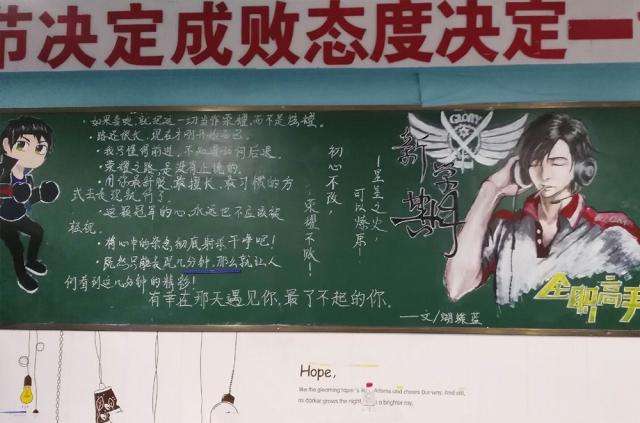 节决定成败态度决定一
·如果喜欢,就把这一切当作荣耀,而不是炫耀。
·路还很长,现在才刚开始而已。
·我只懂得前进,不知道如何后退。
·荣耀之路,是没有上境的。
·用你最舒服,最擅长,最习惯的方
式去表现就行了。
·追逐冠军的心,永远也不应该被
轻视。
·将心中的杂念彻底射杀干净吧!
·既然只能表现几分钟,那么就让人
们看到这几分钟的精彩!
有幸在那天遇见你,最了不起的你。
初心不改,
荣耀不败!
星星之火,
可以燎原!
新学期
GLORY
全职高手
——文/蝴蝶蓝
Hope,
like the gleaming taper's light, Adorns and cheers our way; And still,
as darker grows the night, a brighter ray.